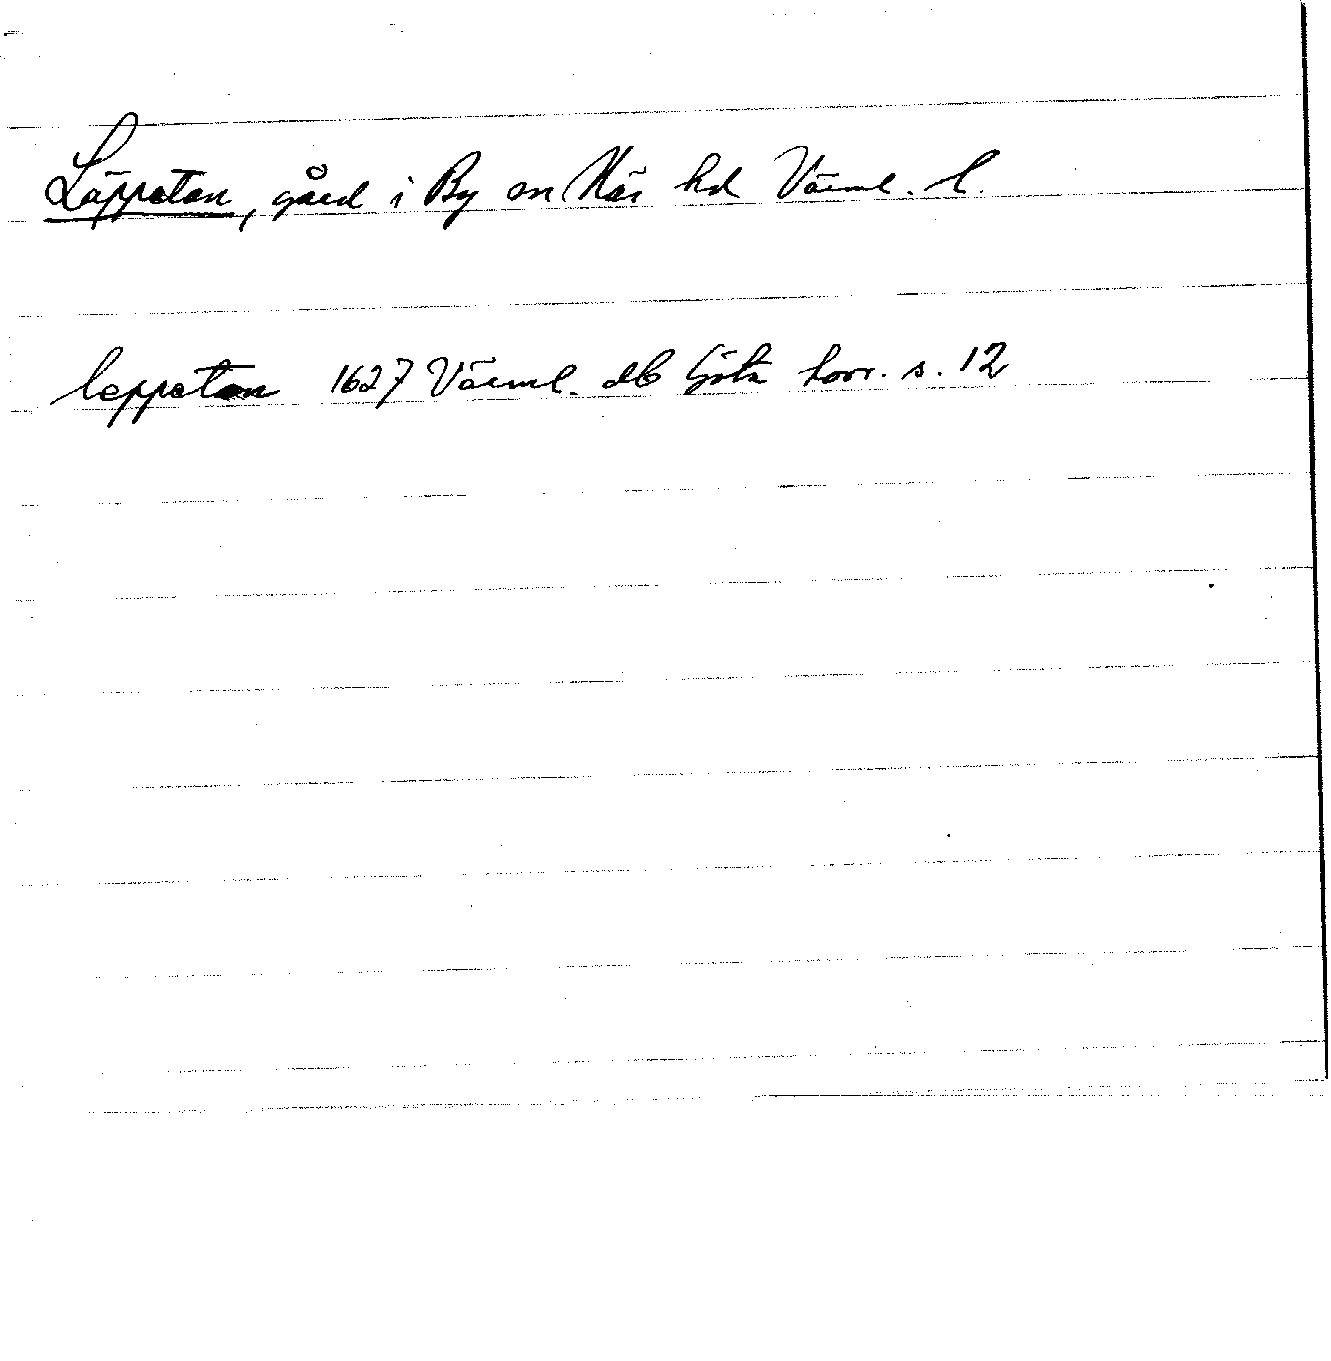 Läppetan, gård i By sn Näs hd Värml. l.
leppetan 1627 Värml. db Göta hovr. s. 12